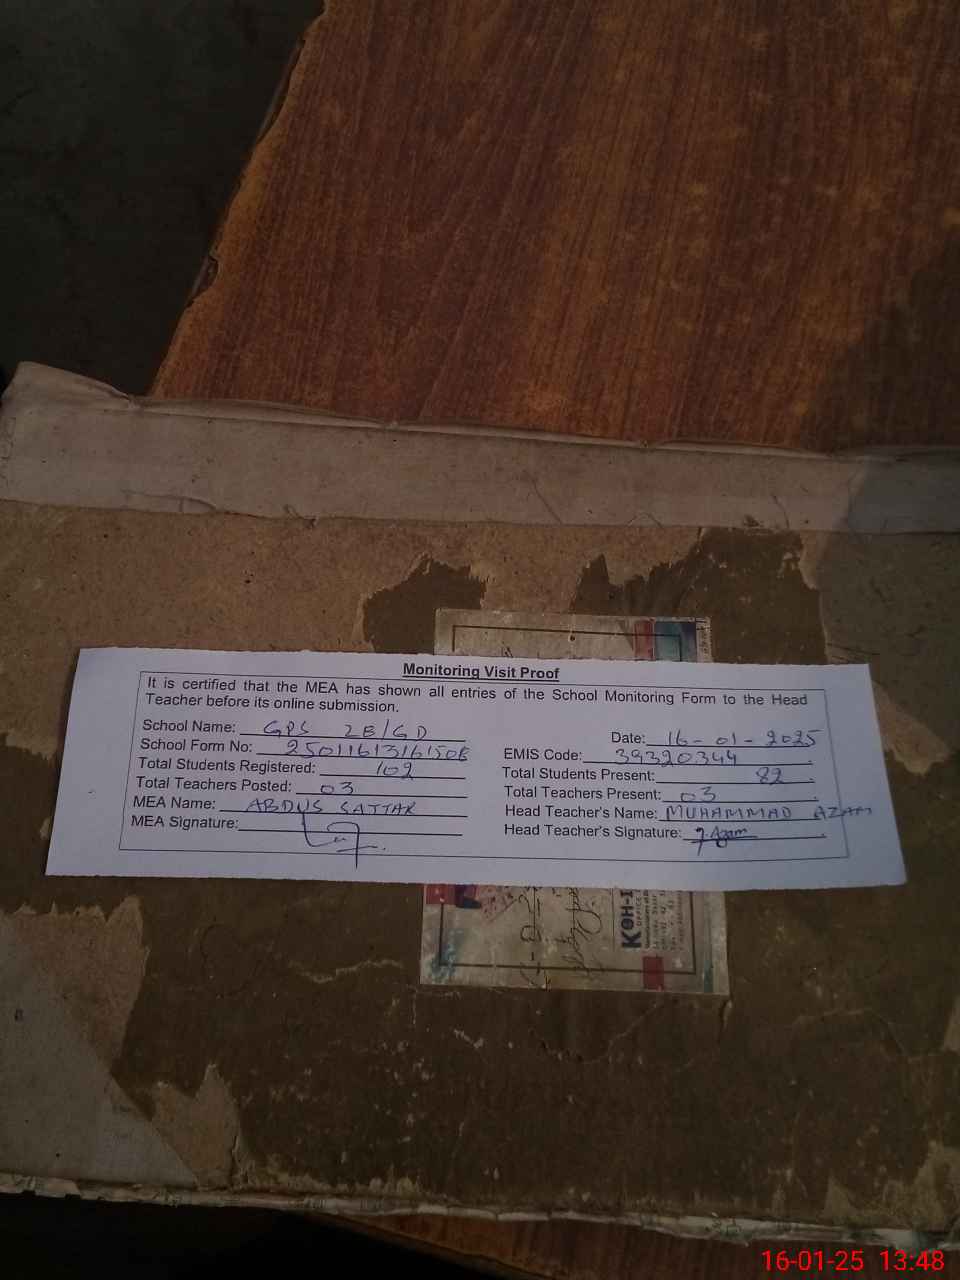 Monitoring Visit Proof
It is certified that the MEA has shown all entries of the School Monitoring Form to the Head
Teacher before its online submission.
School Name: GPS 2B/GD
Date: 16-01-2025
School Form No:
EMIS Code: 39320344
Total Students Registered: 102
Total Students Present: 82
Total Teachers Posted: 03
Total Teachers Present: 03
MEA Name: ABDUS SATTAR
Head Teacher's Name: MUHAMMAD AZAM
MEA Signature:
Head Teacher's Signature: Azam
KOH-I
OFFICE
16-01-25 13:48